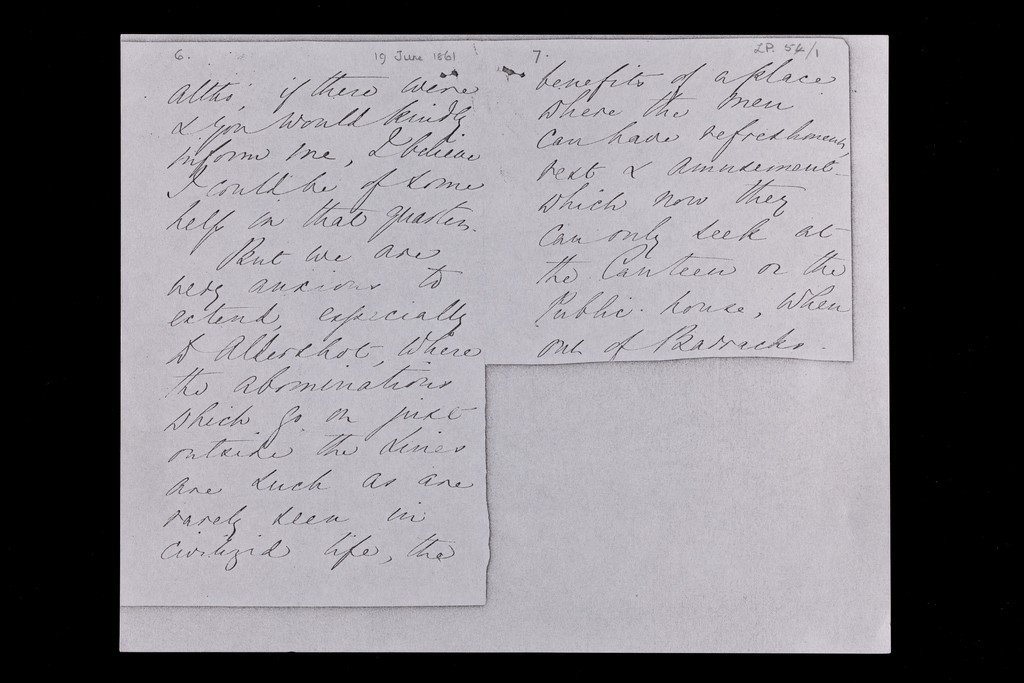 6.
19 June 1861
altho', if there were
& you would kindly
inform me, I believe
I could be of some
help in that quarter.
But we are
very anxious to
extend, especially
to Aldershot, where
the abominations
which go on just
outside the Lines
are such as are
rarely seen in
civilized life, the
7.
LP. 54/1
benefits of a place
where the men
can have refreshment,
rest & amusement
which now they
can only seek at
the Canteen or the
Public-house, when
out of Barracks.